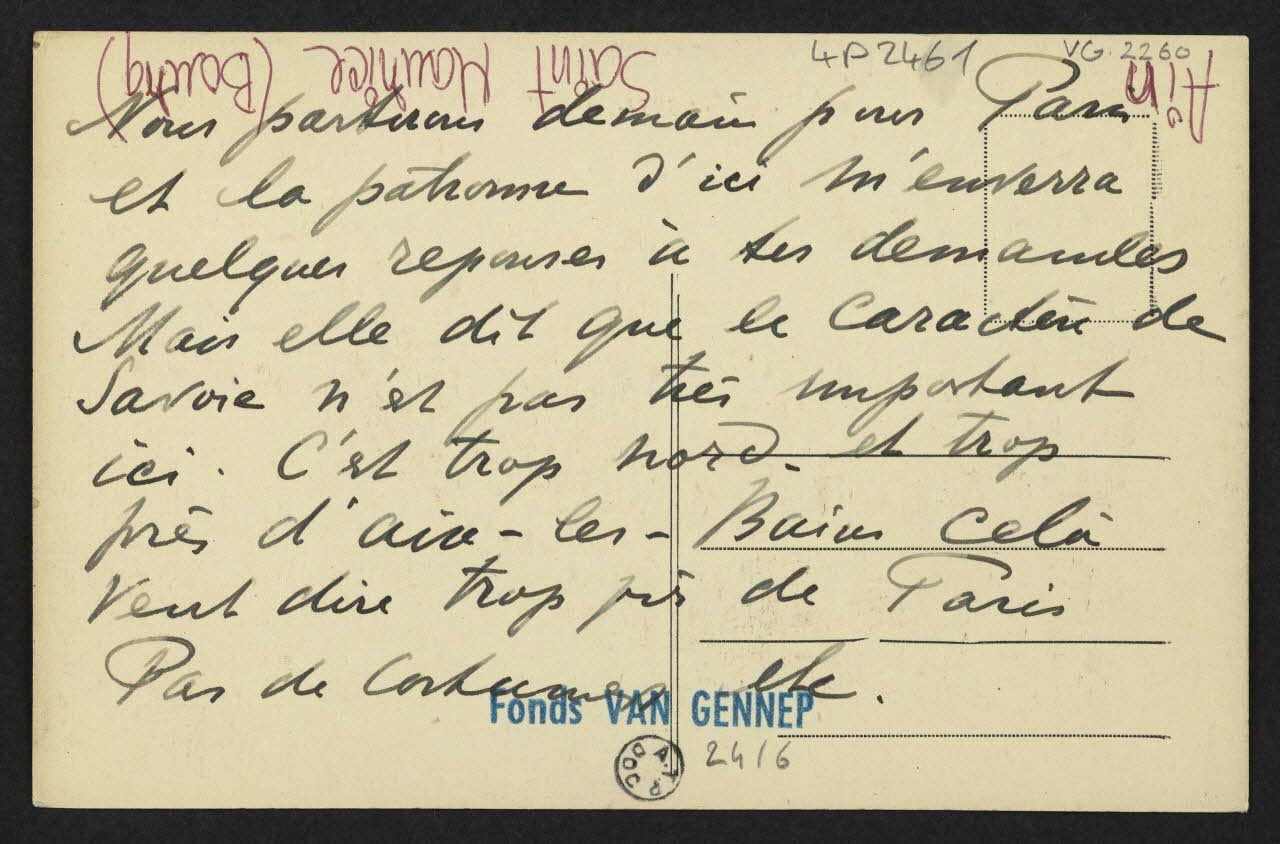 4P2461
VG.2260
Ain
Saint Maurice (Bourg)
Nous partirons demain pour Paris
et la patronne d'ici m'enverra
quelques reponses à tes demandes
Mais elle dit que le Caractère de
Savoie n'est pas très important
ici. C'est trop nord. et trop
près d'aix-les-Bains celà
veut dire trop près de Paris
Pas de Costumes etc.
Fonds VAN GENNEP
DOC A.T.P.
24/6